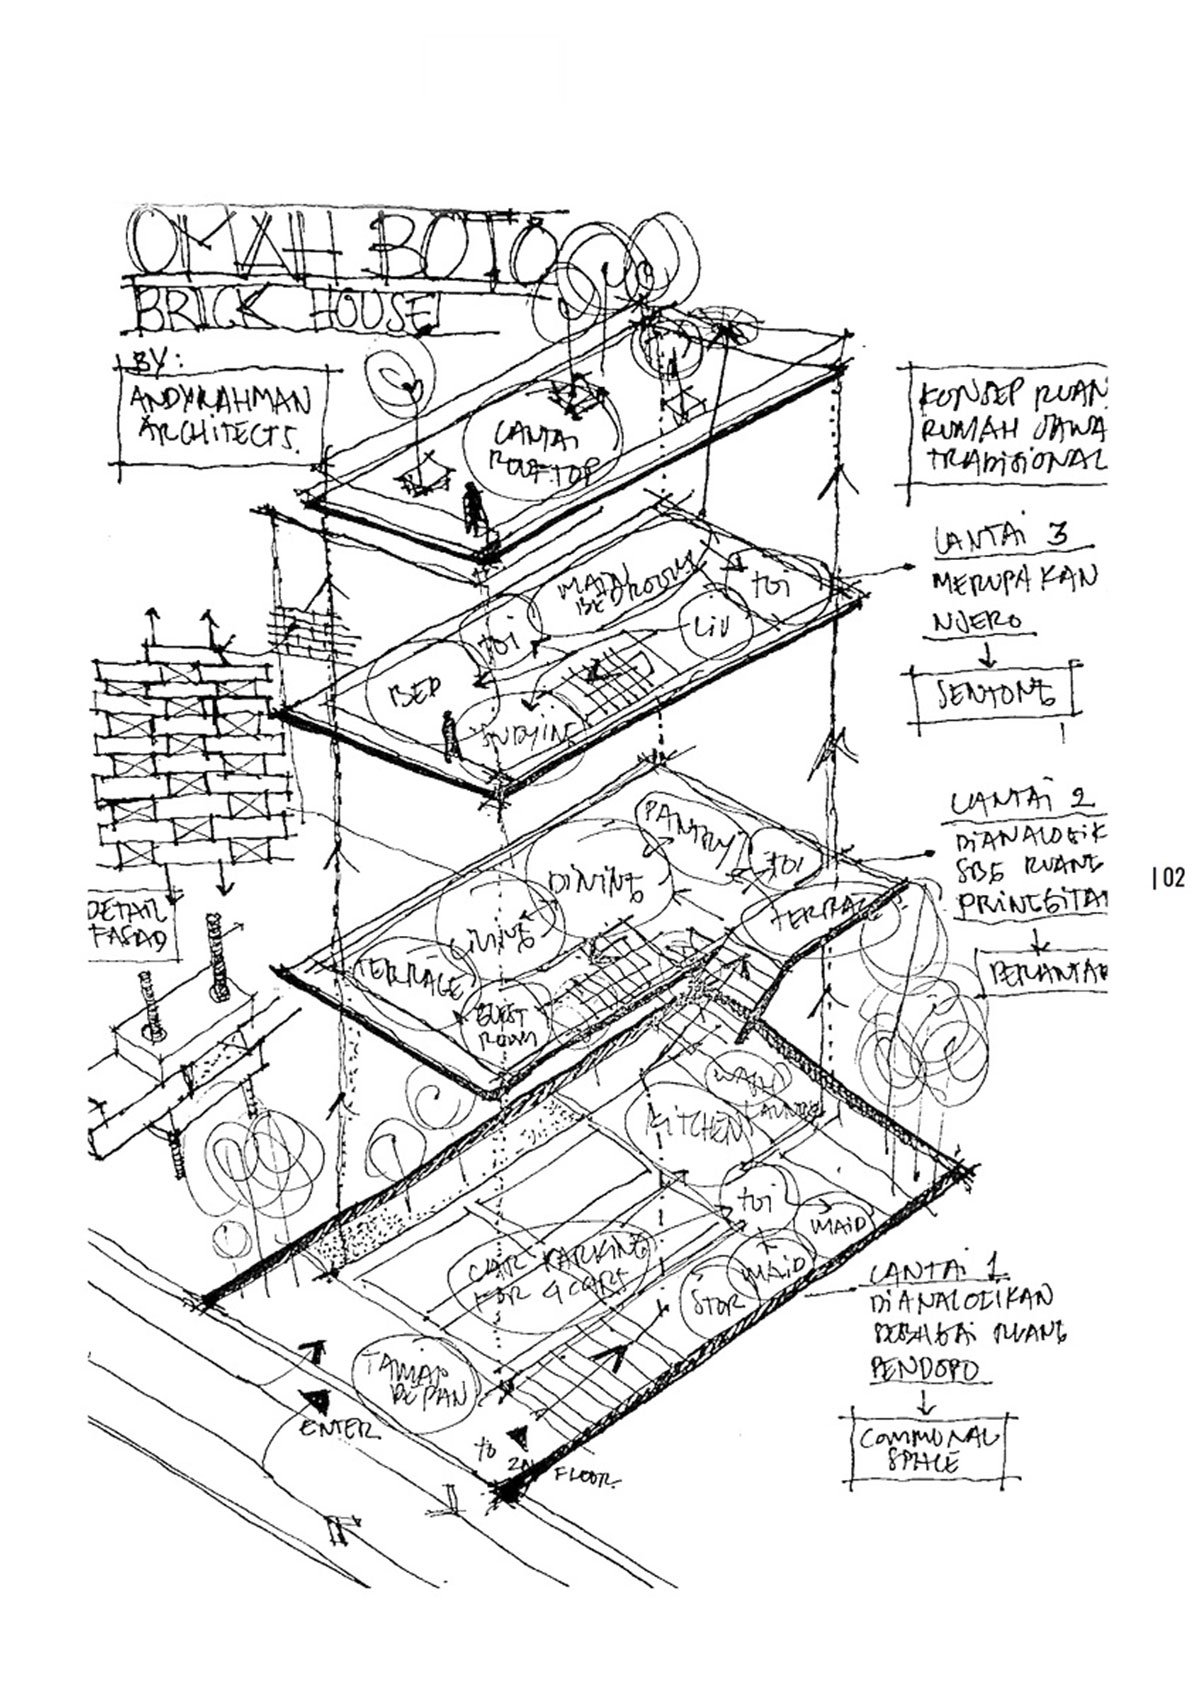 OMAH BOTO
BRICK HOUSE
BY:
ANDYRAHMAN
ARCHITECTS.
KONSEP RUAN
RUMAH JAWA
TRADISIONAL
LANTAI
ROOFTOP
LANTAI 3
MERUPAKAN
NJERO
SENTONG
MAIN
BEDROOM
TOI
TOI
LIV
BED
STUDYING
LANTAI 2
DIANALOGIK
SBG RUANG
PRINGGITAN
PANTRY
TOI
DINING
TERRACE
LIVING
TERRACE
GUEST
ROOM
DETAIL
FASAD
102
KITCHEN
TOI
MAID
MAID
STOR
CAR PARKING
FOR 4 CARS
TAMAN
DEPAN
ENTER
to
2nd
FLOOR
LANTAI 1
DIANALOGIKAN
SEBAGAI RUANG
PENDOPO
COMMUNAL
SPACE